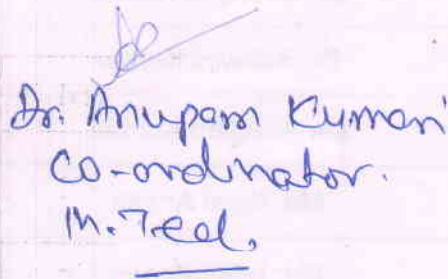 Dr. Anupam Kumari
Co-ordinator.
M.Tech.